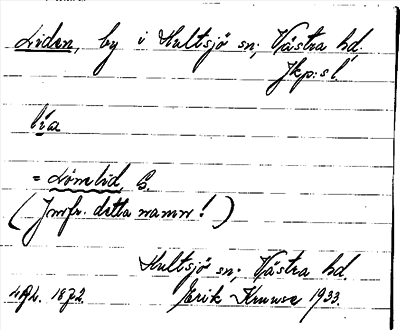 Liden, by i Hultsjö sn; Västra hd.
Jkp:s l.
lia
= Lömelid, B.
(Jmfr. detta namn!)
Hultsjö sn; Västra hd.
1872. Erik Kruuse 1933.